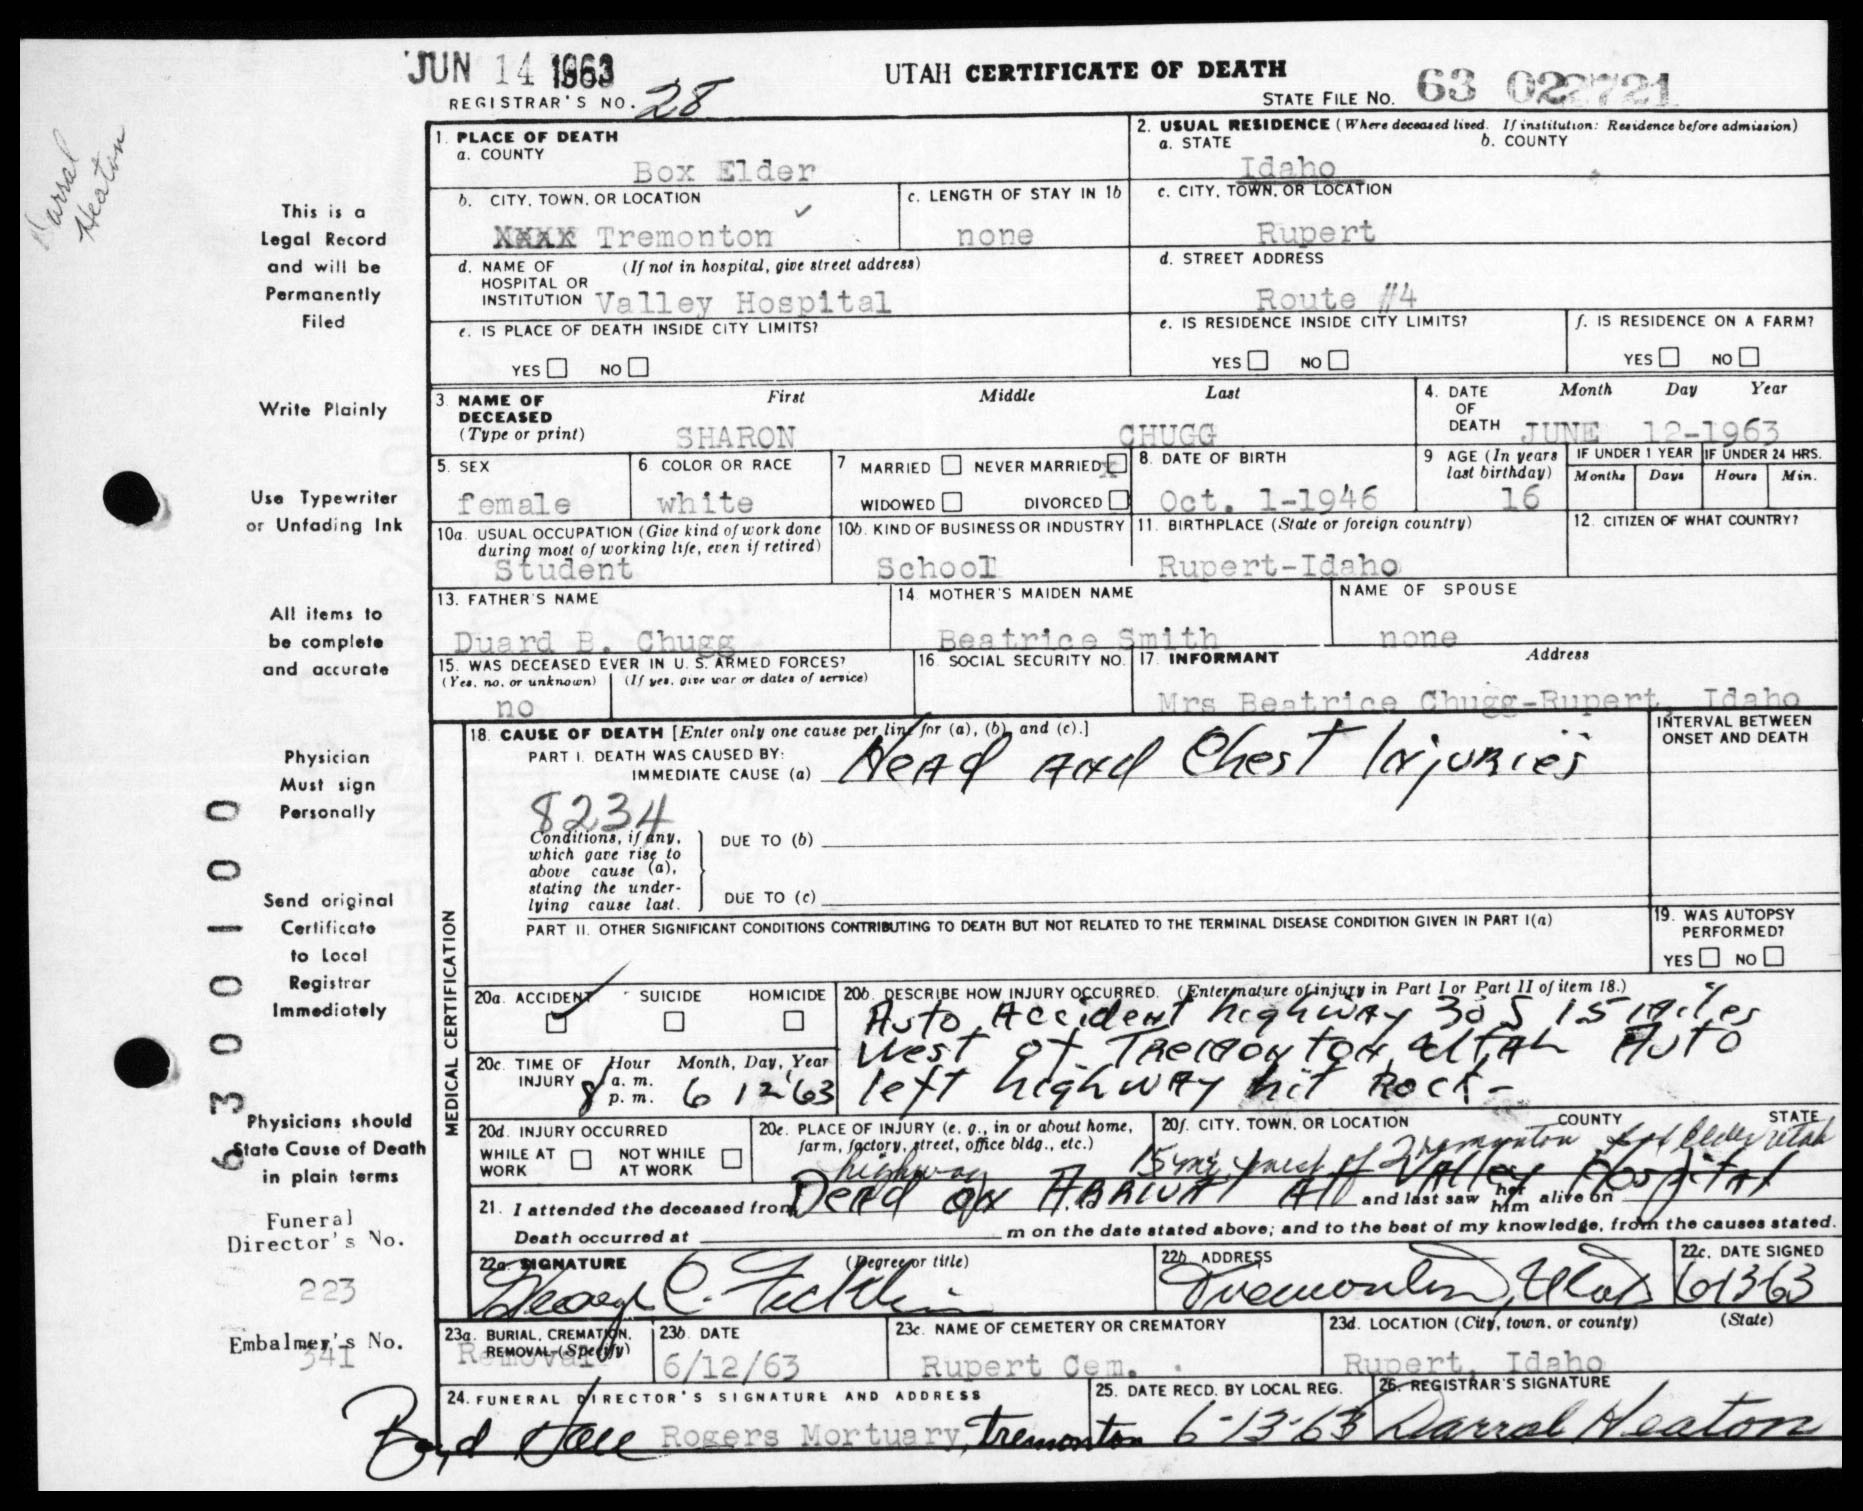 JUN 14 1963
UTAH CERTIFICATE OF DEATH
REGISTRAR'S NO. 28
STATE FILE NO. 63 022721
Darral Heaton
This is a
Legal Record
and will be
Permanently
Filed
Write Plainly
Use Typewriter
or Unfading Ink
All items to
be complete
and accurate
Physician
Must sign
Personally
Send original
Certificate
to Local
Registrar
Immediately
Physicians should
State Cause of Death
in plain terms
Funeral
Director's No.
223
Embalmer's No.
341
6300100
1. PLACE OF DEATH
a. COUNTY
Box Elder
2. USUAL RESIDENCE (Where deceased lived. If institution: Residence before admission)
a. STATE
Idaho
b. COUNTY
b. CITY, TOWN, OR LOCATION
Tremonton
c. LENGTH OF STAY IN 1b
none
c. CITY, TOWN, OR LOCATION
Rupert
d. NAME OF HOSPITAL OR INSTITUTION
(If not in hospital, give street address)
Valley Hospital
d. STREET ADDRESS
Route #4
e. IS PLACE OF DEATH INSIDE CITY LIMITS?
YES NO
e. IS RESIDENCE INSIDE CITY LIMITS?
YES NO
f. IS RESIDENCE ON A FARM?
YES NO
3. NAME OF DECEASED (Type or print)
First Middle Last
SHARON CHUGG
4. DATE OF DEATH
Month Day Year
JUNE 12-1963
5. SEX
female
6 COLOR OR RACE
white
7 MARRIED NEVER MARRIED X
WIDOWED DIVORCED
8. DATE OF BIRTH
Oct. 1-1946
9 AGE (In years last birthday)
16
IF UNDER 1 YEAR
Months Days
IF UNDER 24 HRS.
Hours Min.
10a. USUAL OCCUPATION (Give kind of work done during most of working life, even if retired)
Student
10b. KIND OF BUSINESS OR INDUSTRY
School
11. BIRTHPLACE (State or foreign country)
Rupert-Idaho
12. CITIZEN OF WHAT COUNTRY?
13. FATHER'S NAME
Duard B. Chugg
14 MOTHER'S MAIDEN NAME
Beatrice Smith
NAME OF SPOUSE
none
15. WAS DECEASED EVER IN U. S. ARMED FORCES?
(Yes, no, or unknown) (If yes, give war or dates of service)
no
16. SOCIAL SECURITY NO.
17. INFORMANT Address
Mrs Beatrice Chugg-Rupert, Idaho
MEDICAL CERTIFICATION
18. CAUSE OF DEATH [Enter only one cause per line for (a), (b), and (c).]
PART I. DEATH WAS CAUSED BY:
IMMEDIATE CAUSE (a) Head and Chest Injuries
INTERVAL BETWEEN ONSET AND DEATH
8234
Conditions, if any, which gave rise to above cause (a), stating the underlying cause last.
DUE TO (b)
DUE TO (c)
PART II. OTHER SIGNIFICANT CONDITIONS CONTRIBUTING TO DEATH BUT NOT RELATED TO THE TERMINAL DISEASE CONDITION GIVEN IN PART I(a)
19. WAS AUTOPSY PERFORMED?
YES NO
20a. ACCIDENT SUICIDE HOMICIDE
20b. DESCRIBE HOW INJURY OCCURRED. (Enter nature of injury in Part I or Part II of item 18.)
Auto Accident highway 30 S 15 miles
West of Tremonton, Utah Auto
left highway hit Rock-
20c. TIME OF INJURY
Hour Month, Day, Year
8 a. m. p. m. 6 12 '63
20d. INJURY OCCURRED
WHILE AT WORK NOT WHILE AT WORK
20e. PLACE OF INJURY (e. g., in or about home, farm, factory, street, office bldg., etc.)
highway
20f. CITY, TOWN, OR LOCATION COUNTY STATE
15 mi west of Tremonton Box Elder Utah
21. I attended the deceased from Dead on Arrival At Valley Hospital and last saw her him alive on
Death occurred at m on the date stated above; and to the best of my knowledge, from the causes stated.
22a. SIGNATURE (Degree or title)
George C. Ficklin
22b. ADDRESS
Tremonton, Utah
22c. DATE SIGNED
6 13 63
23a. BURIAL, CREMATION, REMOVAL (Specify)
Removal
23b. DATE
6/12/63
23c. NAME OF CEMETERY OR CREMATORY
Rupert Cem.
23d. LOCATION (City, town, or county) (State)
Rupert, Idaho
24. FUNERAL DIRECTOR'S SIGNATURE AND ADDRESS
Boyd Hall Rogers Mortuary, Tremonton
25. DATE RECD. BY LOCAL REG.
6-13-63
26. REGISTRAR'S SIGNATURE
Darral Heaton